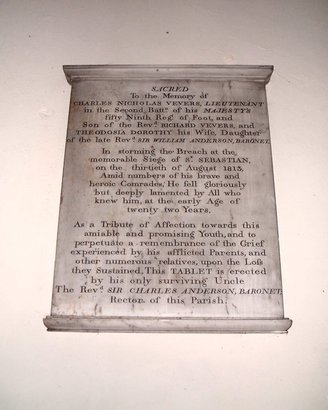 SACRED
To the Memory of
CHARLES NICHOLAS VEVERS, LIEUTENANT
in the Second Battn. of his MAJESTYS
fifty Ninth Regt. of Foot, and
Son of the Revd. RICHARD VEVERS, and
THEODOSIA DOROTHY his Wife, Daughter
of the late Revd. SIR WILLIAM ANDERSON, BARONET.
In storming the Breach at the
memorable Siege of St. SEBASTIAN,
on the thirtieth of August 1813,
Amid numbers of his brave and
heroic Comrades, He fell gloriously
but deeply lamented by All who
knew him, at the early Age of
twenty two Years.
As a Tribute of Affection towards this
amiable and promising Youth, and to
perpetuate a remembrance of the Grief
experienced by his afflicted Parents, and
other numerous relatives, upon the Loſs
they Sustained, This TABLET is erected
by his only surviving Uncle
The Revd. SIR CHARLES ANDERSON, BARONET:
Rector of this Parish.